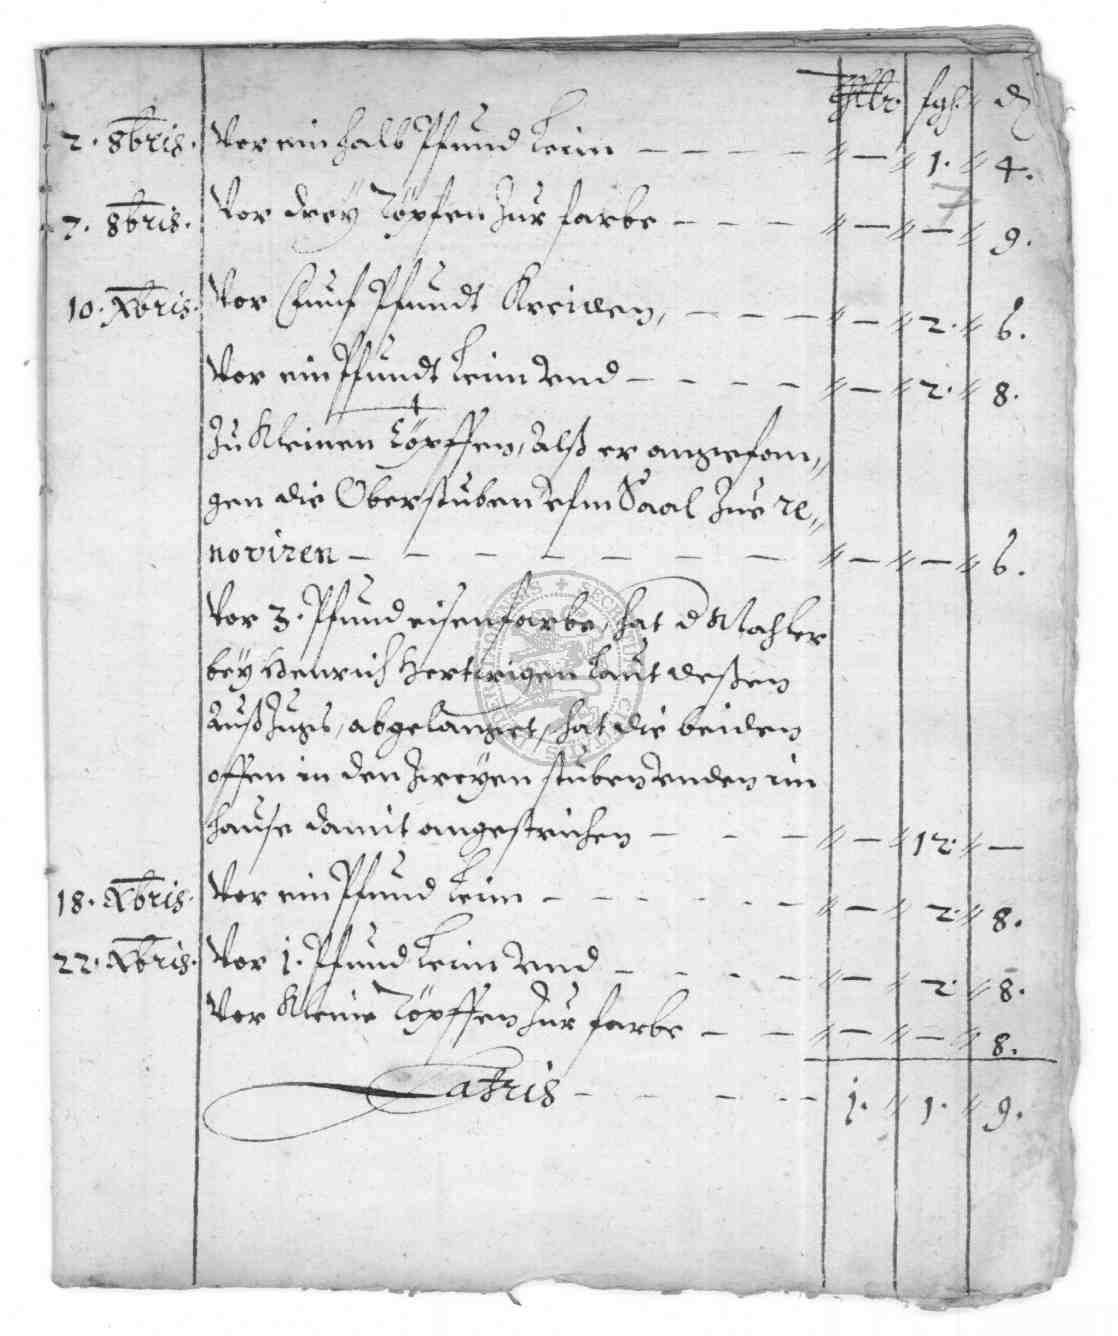 Thlr. sgl. d
2. 8bris. Vor ein halb Pfund Leim - - - - - " — " 1. " 4.
7
7. 8bris. Vor drey Töpfen zur farbe - - - - " — " — " 9.
10. Xbris. Vor fünf Pfundt Kreiden, - - - - " — " 2. " 6.
Vor ein Pfundt Leim vnd - - - - " — " 2. " 8.
Zu Kleinen Töpffen, alß er angefan„
gen die Oberstuben vfm Saal zue re„
noviren - - - - - - - - " — " — " 6.
Vor 3. Pfund eisenfarbe, hat d Mahler
bey Henrich Hertwigen laut deßen
Außzugs, abgelanget, hat die beiden
offen in den zweyen stuben vnden im
hause damit angestrichen - - - " — " 12. " —
18. Xbris. Vor ein Pfund Leim - - - - - - " — " 2. " 8.
22. Xbris. Vor 1. Pfund Leim vnd - - - - " — " 2. " 8.
Vor Kleine Töpffen zur farbe - - " — " — " 8.
Latris - - - - - 1. " 1. " 9.